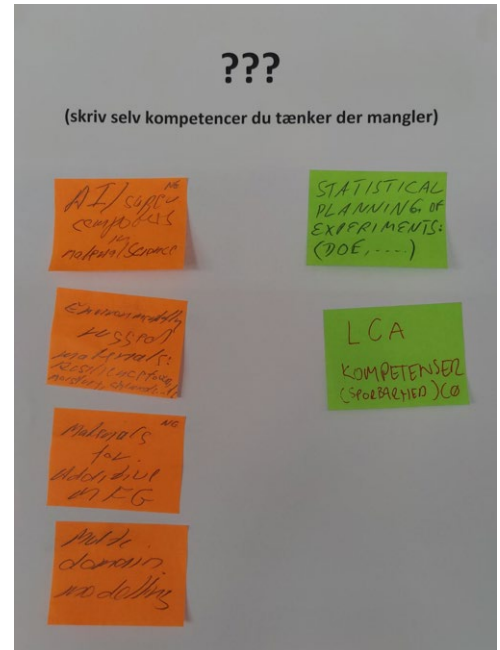 ???
(skriv selv kompetencer du tænker der mangler)
NG
AI/super
computers
in
material science
Environmentally
materials:
Materials
NG
for
Additive
MFG
domain
modelling
STATISTICAL
PLANNING OF
EXPERIMENTS:
(DOE, .....)
LCA
KOMPETENSER
(SPORBARHED) CØ